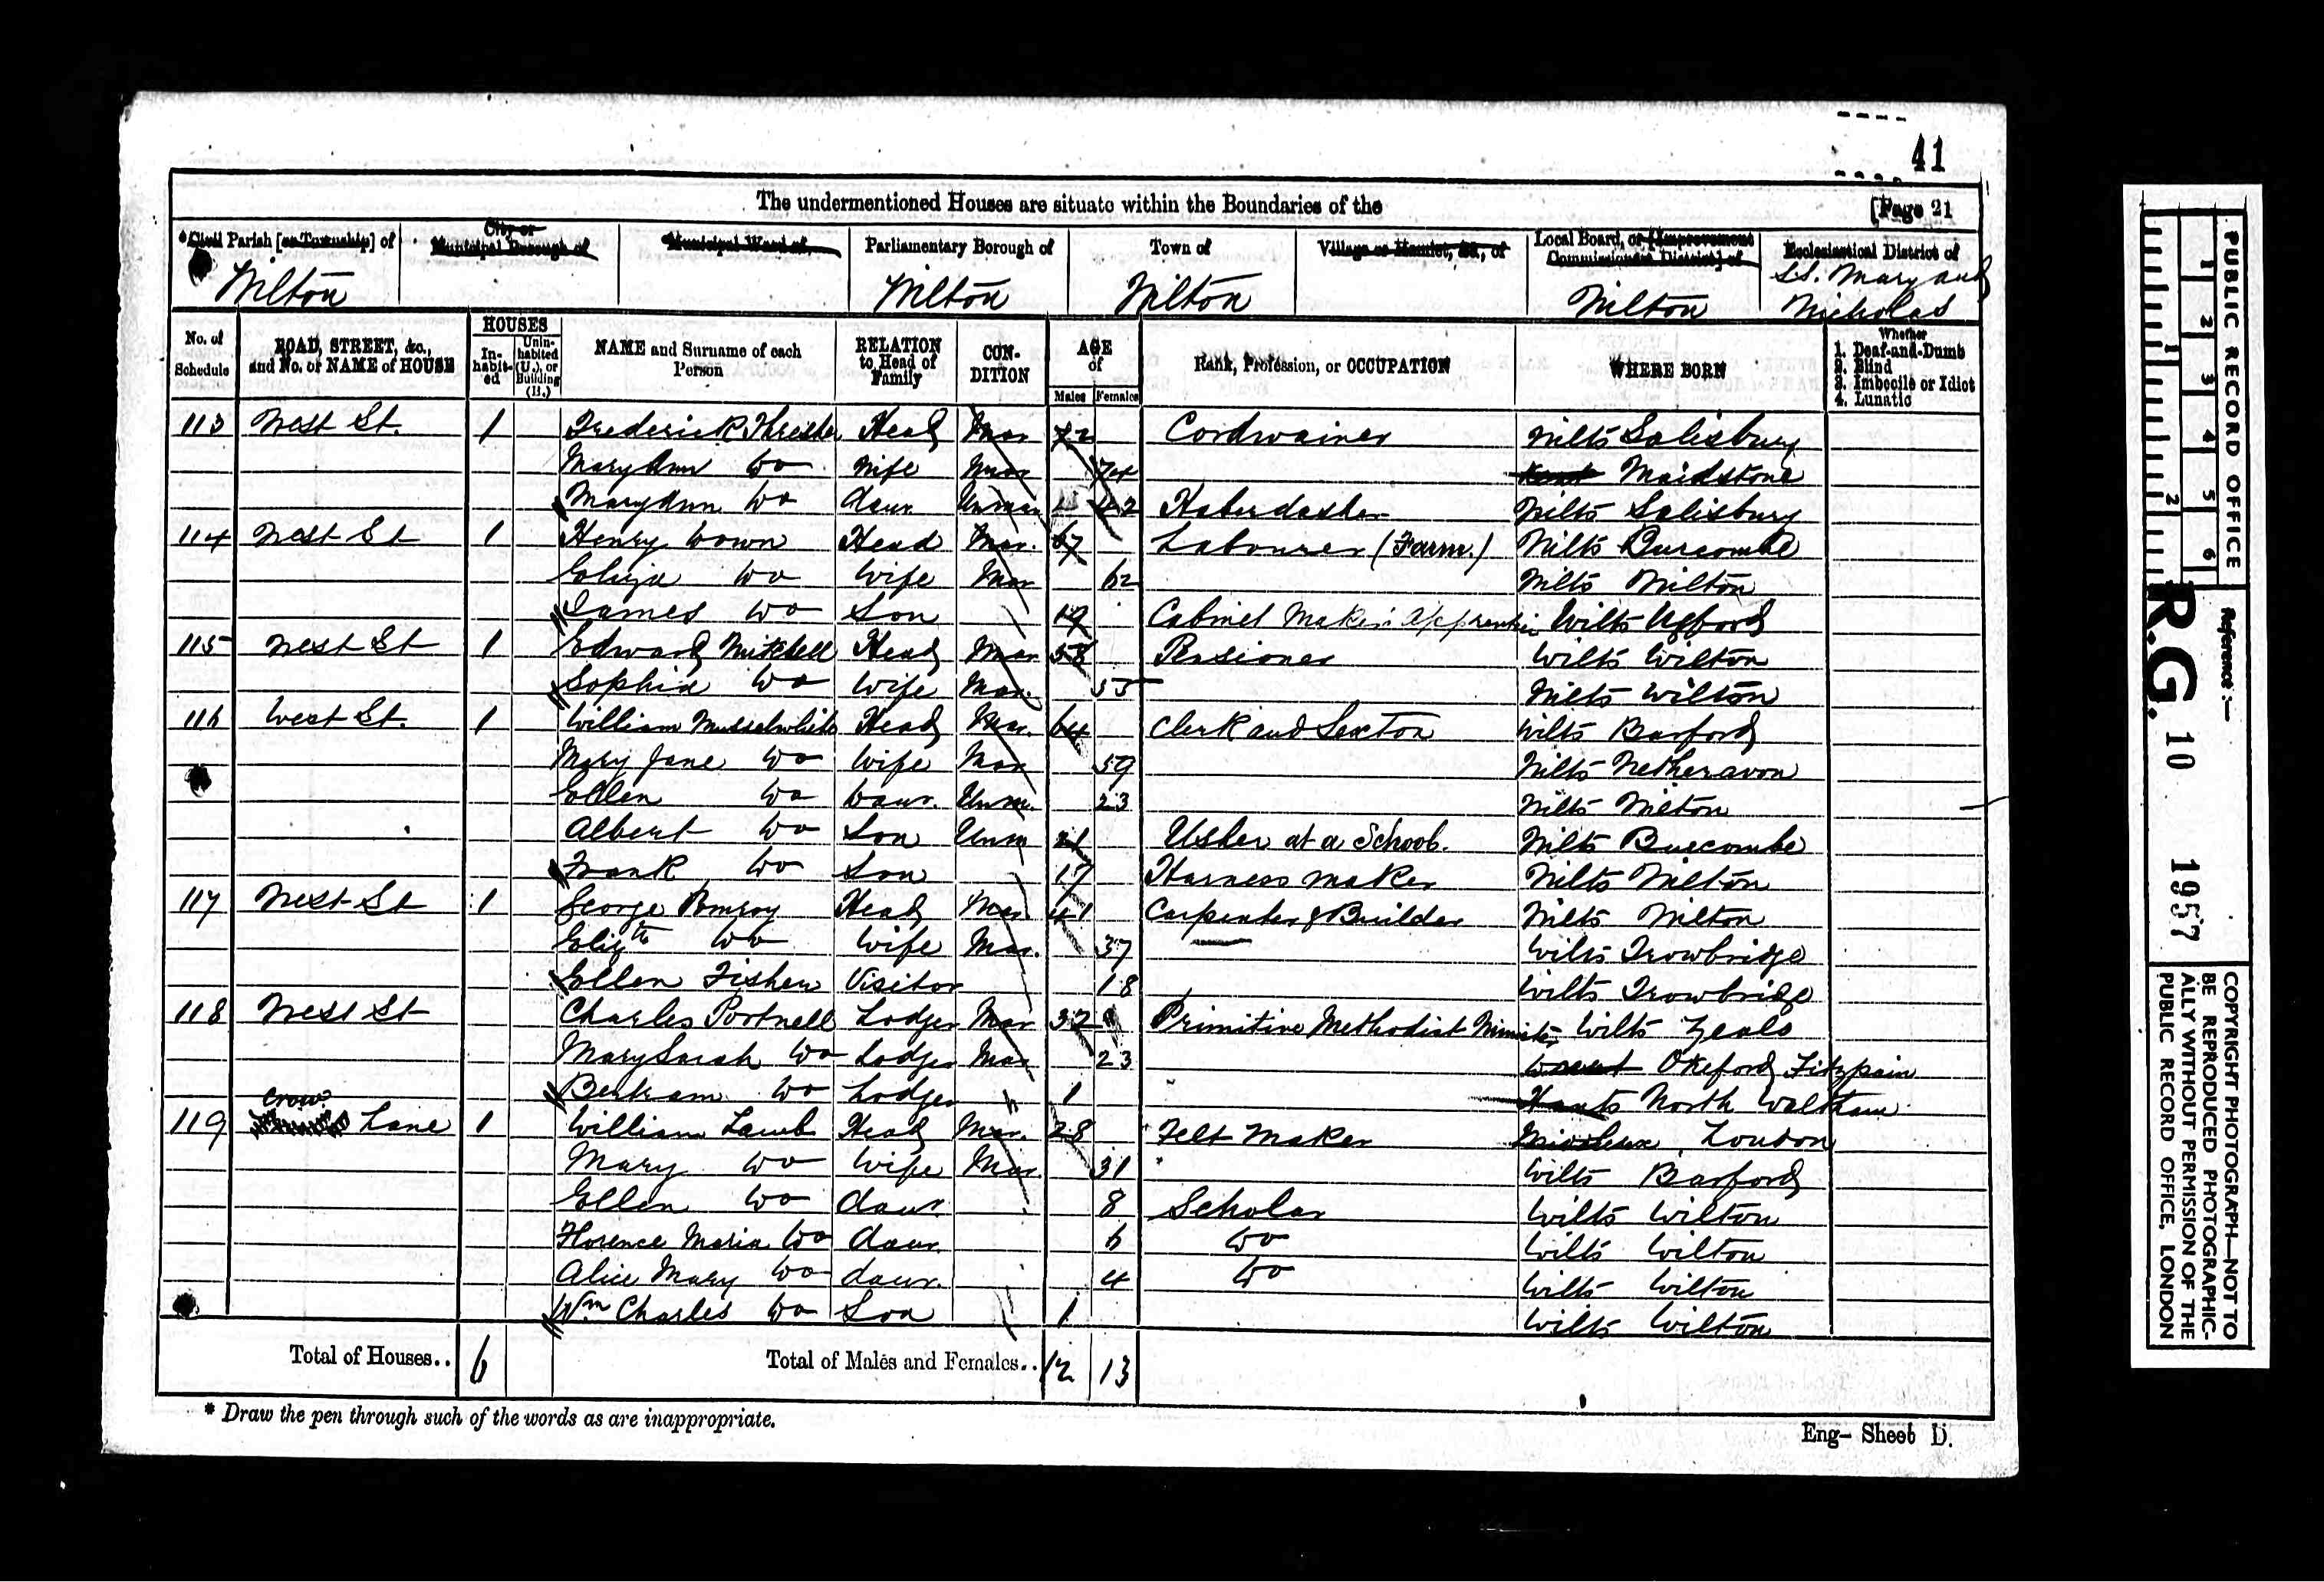 41
The undermentioned Houses are situate within the Boundaries of the [Page 21
*Civil Parish [or Township] of City or Municipal Borough of Municipal Ward of Parliamentary Borough of Town of Village or Hamlet, &c., of Local Board, or [Improvement Commissioners District] of Ecclesiastical District of
Wilton Wilton Wilton Wilton SS. Mary and Nicholas
No. of Schedule ROAD, STREET, &c., and No. or NAME of HOUSE HOUSES Inhabited Uninhabited (U.), or Building (B.) NAME and Surname of each Person RELATION to Head of Family CONDITION AGE of Males Females Rank, Profession, or OCCUPATION WHERE BORN Whether 1. Deaf-and-Dumb 2. Blind 3. Imbecile or Idiot 4. Lunatic
113 West St. 1 Frederick Head Mar 72 Cordwainer Wilts Salisbury
Mary Ann Do Wife Mar 74 Kent Maidstone
Mary Ann Do daur Unmar 42 Haberdasher Wilts Salisbury
114 West St 1 Henry Down Head Mar. 67 Labourer (Farm.) Wilts Burcombe
Eliza Do Wife Mar 62 Wilts Wilton
James Do Son 19 Cabinet Maker's Apprentice Wilts Ugford
115 West St 1 Edward Mitchell Head Mar 58 Pensioner Wilts Wilton
Sophia Do Wife Mar. 55 Wilts Wilton
116 West St. 1 William Musselwhite Head Mar. 64 Clerk and Sexton Wilts Barford
Mary Jane Do Wife Mar 59 Wilts Netheravon
Ellen Do Daur. Unm. 23 Wilts Wilton
Albert Do Son Unm 21 Usher at a School. Wilts Burcombe
Frank Do Son 17 Harness maker Wilts Wilton
117 West St 1 George Pomroy Head Mar 41 Carpenter & Builder Wilts Wilton
Elizth Do Wife Mar. 37 Wilts Trowbridge
Ellen Fisher Visitor 18 Wilts Trowbridge
118 West St Charles Portnell Lodger Mar 32 Primitive Methodist Minister Wilts Zeals
Mary Sarah Do Lodger Mar 23 Dorset Okeford Fitzpain
Bertram Do Lodger 1 Hants North Waltham
119 Crow Lane 1 William Lamb Head Mar. 28 Felt Maker Middlesex London
Mary Do Wife Mar. 31 Wilts Barford
Ellen Do daur. 8 Scholar Wilts Wilton
Florence Maria Do daur. 6 Do Wilts Wilton
Alice Mary Do daur. 4 Do Wilts Wilton
Wm Charles Do Son 1 Wilts Wilton
Total of Houses.. 6 Total of Males and Females.. 12 13
* Draw the pen through such of the words as are inappropriate.
Eng- Sheet D.
PUBLIC RECORD OFFICE
1 2 3 4 5 6
1 2
Reference:-
R.G. 10 1957
COPYRIGHT PHOTOGRAPH—NOT TO
BE REPRODUCED PHOTOGRAPHIC-
ALLY WITHOUT PERMISSION OF THE
PUBLIC RECORD OFFICE, LONDON